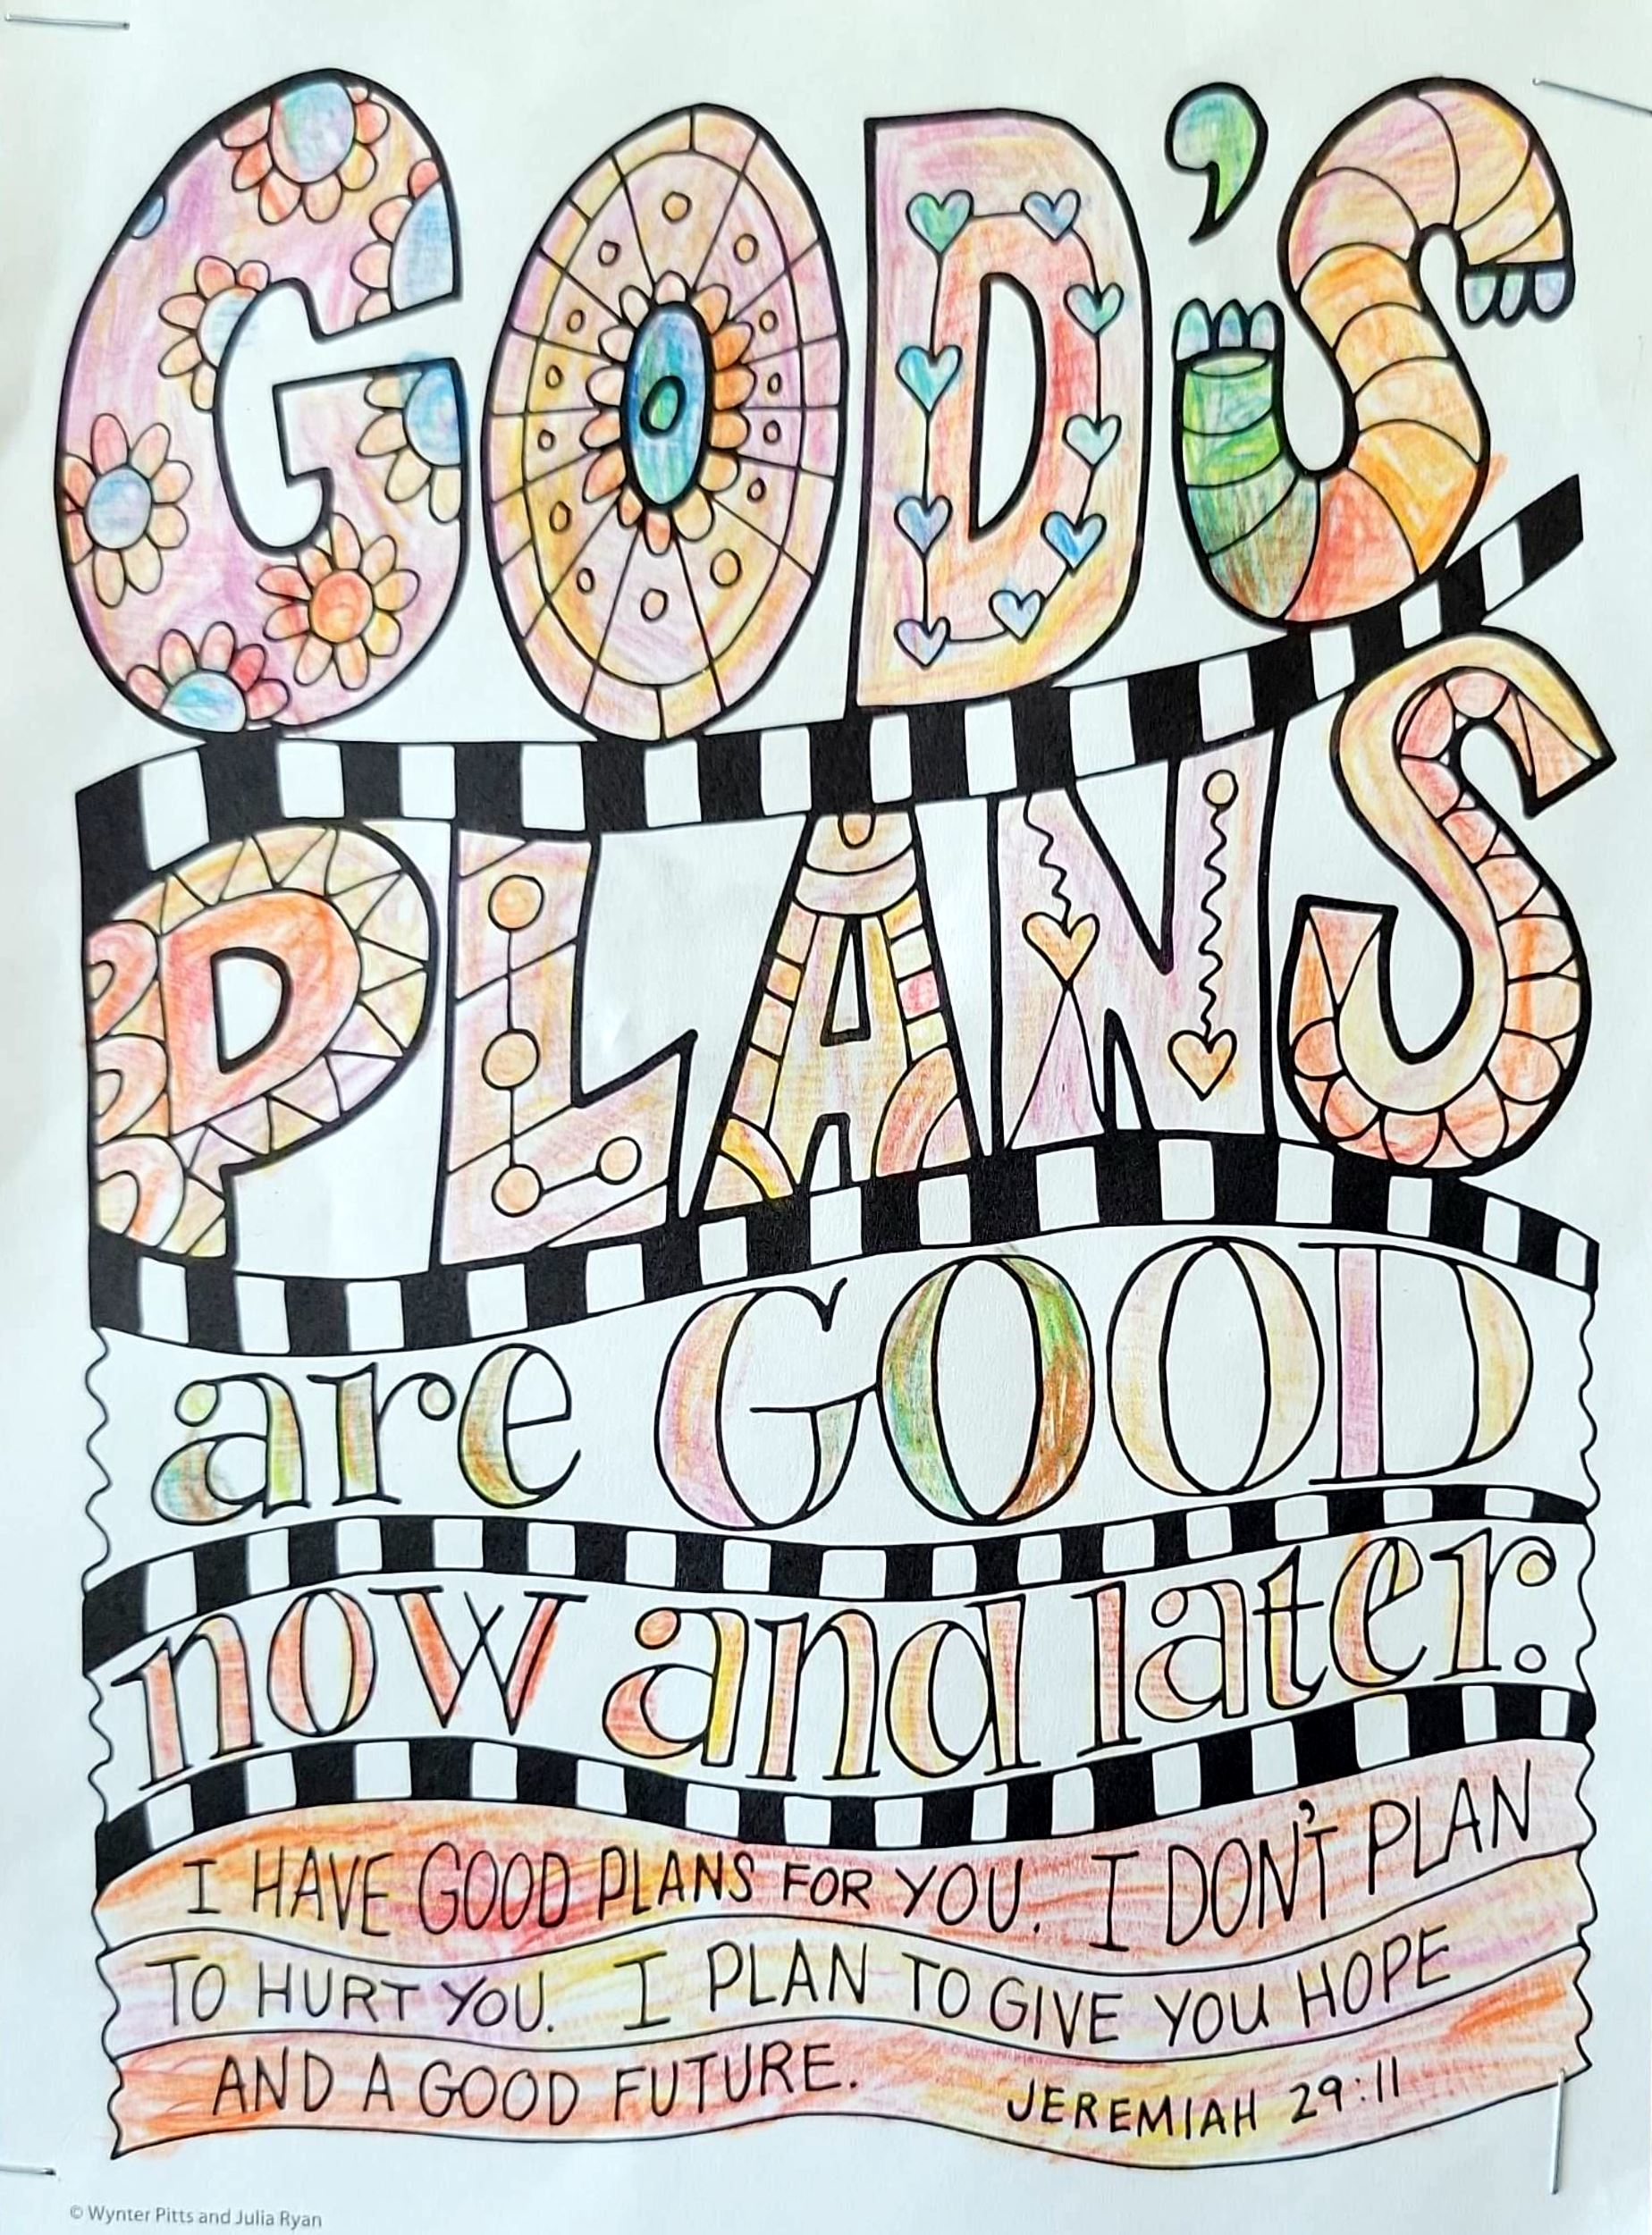 GOD'S
PLANS
are GOOD
now and later.
I HAVE GOOD PLANS FOR YOU. I DON'T PLAN
TO HURT YOU. I PLAN TO GIVE YOU HOPE
AND A GOOD FUTURE. JEREMIAH 29:11
© Wynter Pitts and Julia Ryan